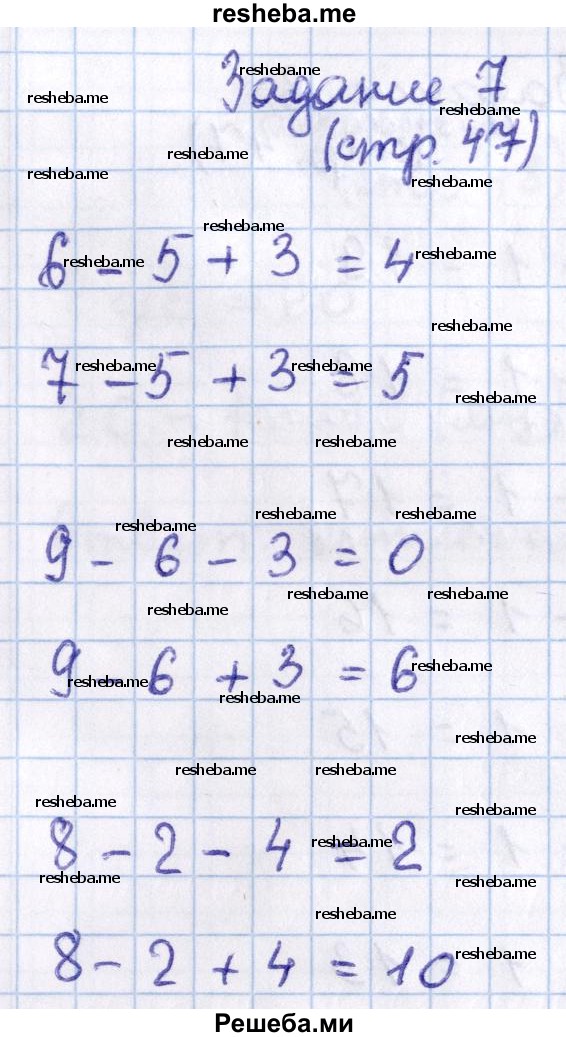 resheba.me
Задание 7
(стр. 47)
6 - 5 + 3 = 4
7 - 5 + 3 = 5
9 - 6 - 3 = 0
9 - 6 + 3 = 6
8 - 2 - 4 = 2
8 - 2 + 4 = 10
Решеба.ми